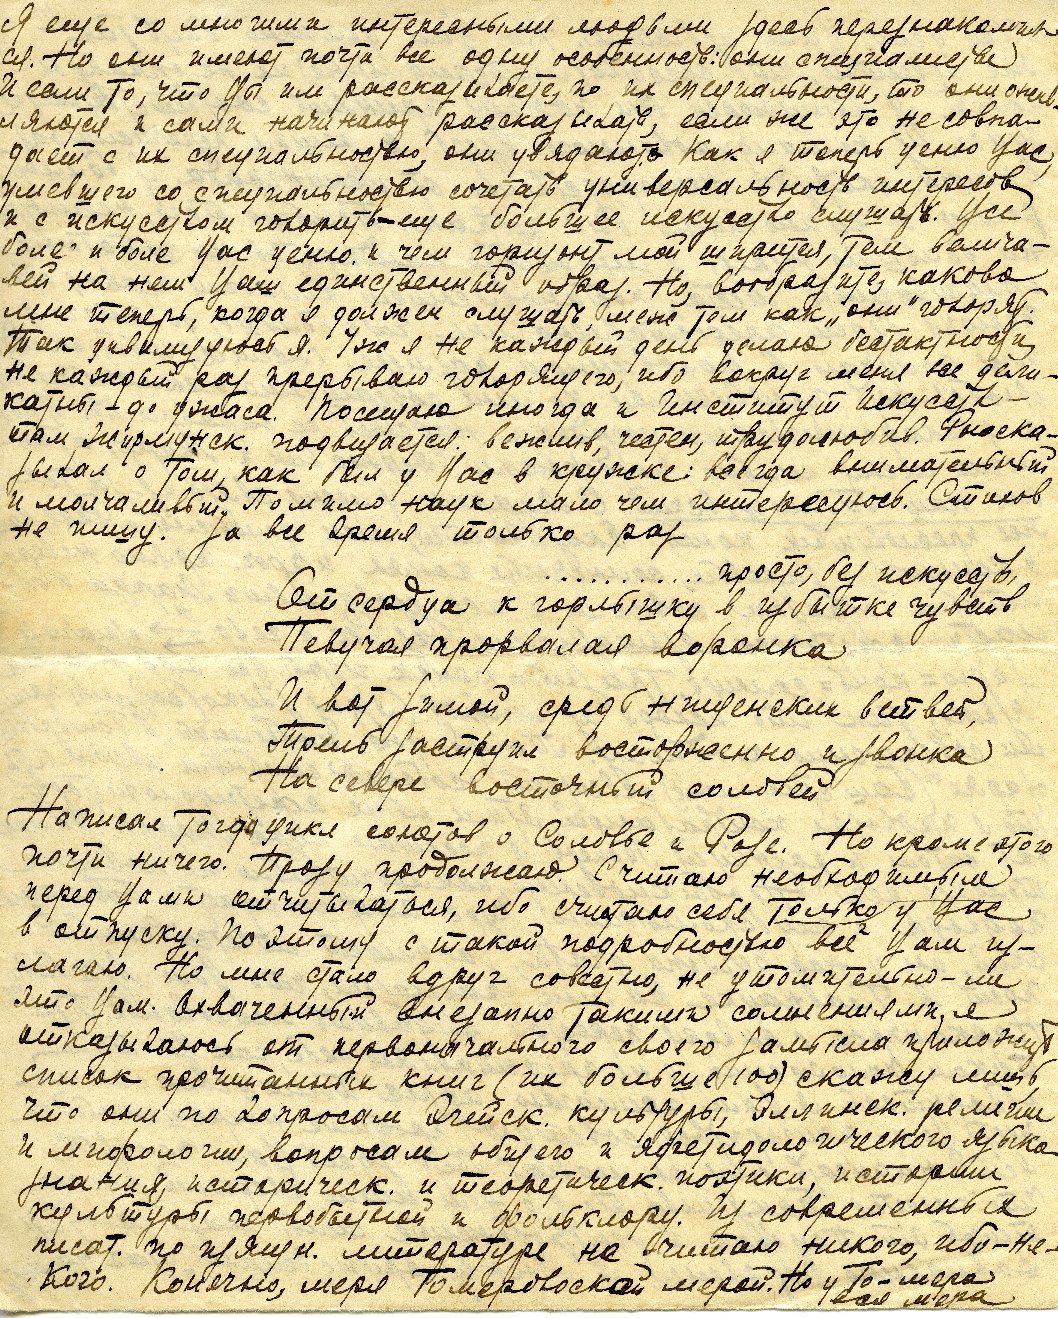 Я еще со многими интересными людьми здесь перезнакомил-
ся. Но они имеют почти все одну особенность: они специалисты
И если то, что Вы им рассказываете, по их специальности, то они ожив
ляются и сами начинают рассказывать, если же это не совпа-
дает с их специальностью, они увядают. Как я теперь ценю Вас,
умевшего со специальностью сочетать универсальность интересов
и с искусством говорить – еще большее искусство слушать. Все
боле и боле Вас ценю. и чем горизонт мой ширится, тем велича-
вей на нем Ваш единственный образ. Но, вообразите, каково
мне теперь, когда я должен слушать, меж тем как „они" говорят.
Так цивилизуюсь я. Уж я не каждый день делаю бестактности,
не каждый раз прерываю говорящего, ибо вокруг меня все дели-
катны – до ужаса. Посещаю иногда и Институт Искусств –
там Жирмунск. подвизается: вежлив, честен, трудолюбив. Рассказ-
зывал о том, как был у Вас в кружке: всегда внимательный
и молчаливый. Помимо наук мало чем интересуюсь. Стихов
не пишу. За все время только раз
............ просто, без искусств,
От сердца к горлышку в избытке чувств
Певучая прорвалая воронка
И вот зимой, средь нищенских ветвей,
Трель заструил восторженно и звонко
На севере восточный соловей
Написал тогда цикл сонетов о Соловье и Розе. Но кроме этого
почти ничего. Прозу продолжаю Считаю необходимым
перед Вами отчитываться, ибо считаю себя только у Вас
в отпуску. Поэтому с такой подробностью всё Вам из-
лагаю. Но мне стало вдруг совестно, не утомительно-ли
это Вам. Охваченный внезапно такими сомнениями, я
отказываюсь от первоначального своего замысла приложить
список прочитанных книг (их больше 100) скажу лишь,
что они по вопросам Эгейск. культуры, Эллинск. религии
и мифологии, вопросам общего и яфетидологического языко
знания, историческ. и теоретическ. поэтики, истории
культуры первобытной и фольклору. Из современных
писат. по изящн. литературе не читаю никого, ибо – не-
кого. Конечно, меря Гомеровской мерой. Но у Го-мера
вся мера